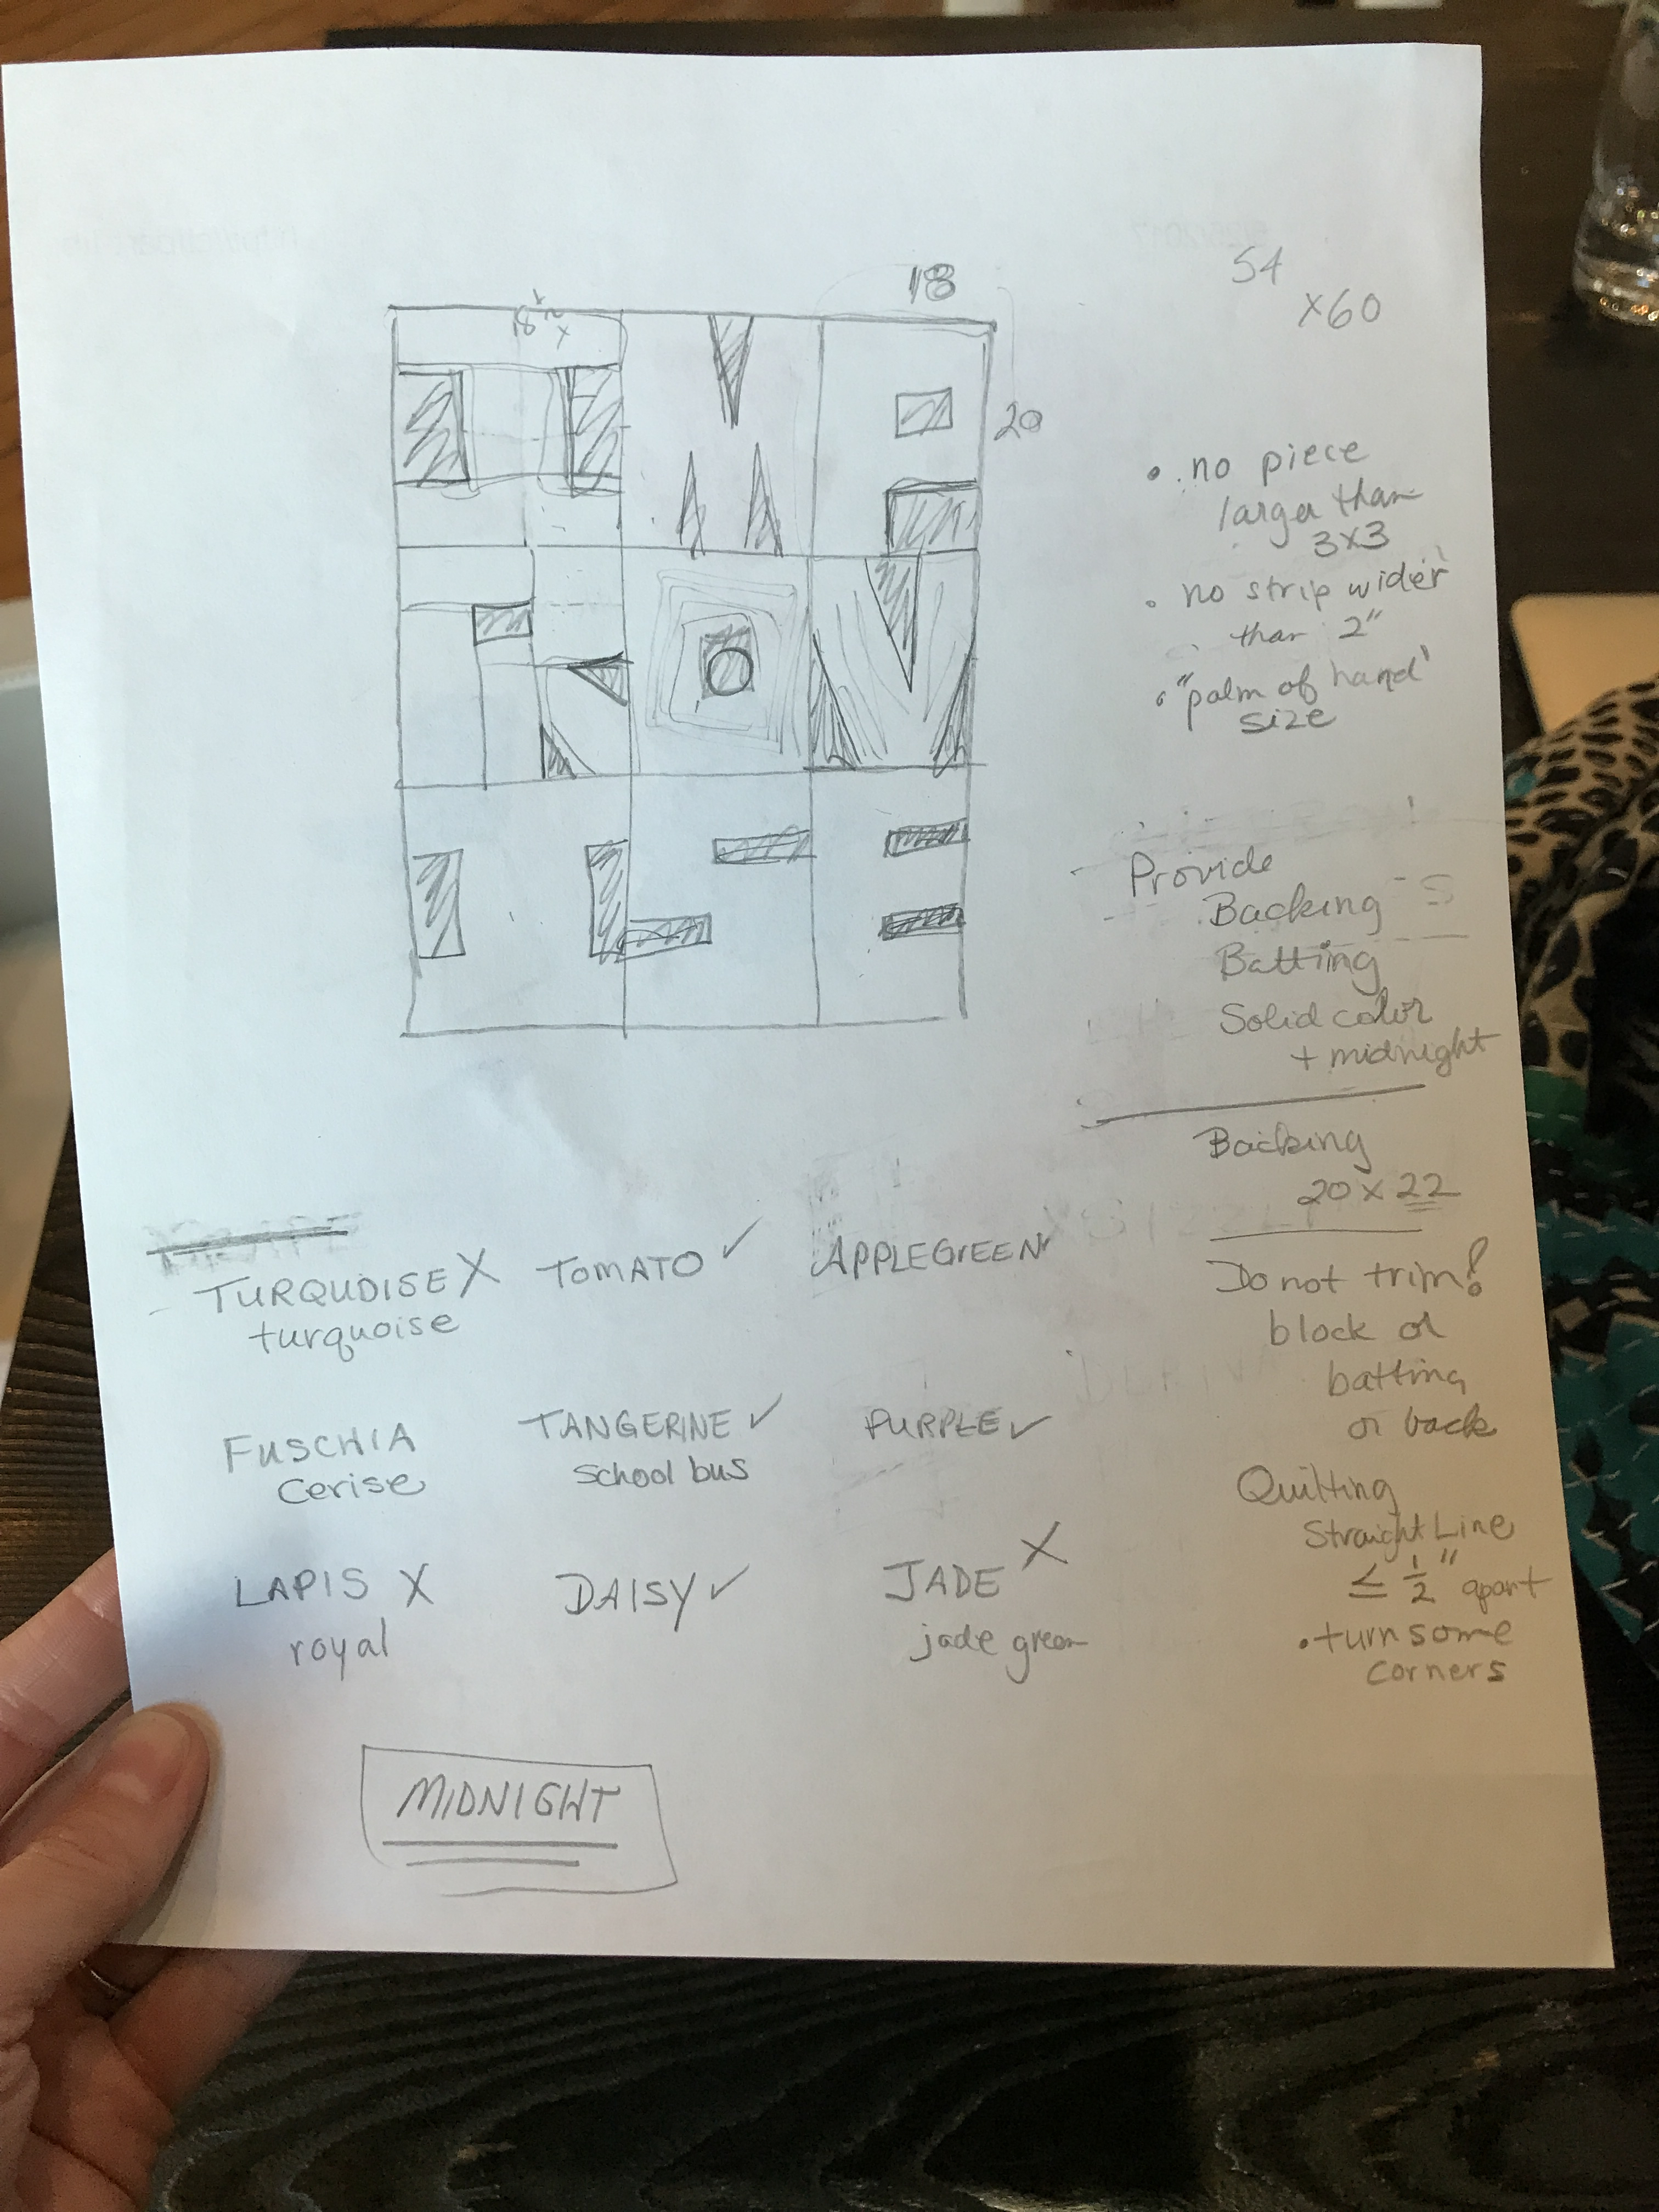 18
54
x60
18 1/2
x
20
• no piece
larger than
3x3
• no strip wider
than 2"
• "palm of hand"
size
Provide
Backing
Batting
Solid color
+ midnight
Backing
20 x 22
Do not trim!
block or
batting
or back
Quilting
Straight Line
≤ 1/2" apart
• turn some
corners
TURQUOISE X TOMATO ✓ APPLEGREEN ✓
turquoise
FUSCHIA TANGERINE ✓ PURPLE ✓
Cerise School bus
LAPIS X DAISY ✓ JADE X
royal jade green
MIDNIGHT